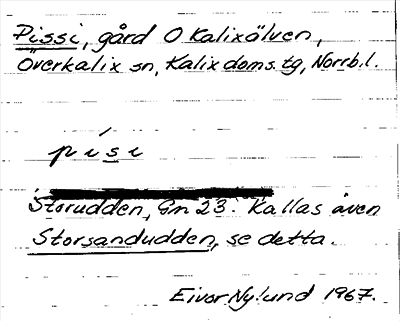 Pissi, gård O Kalixälven,
Överkalix sn, Kalix doms.tg, Norrb.l.
písi
Storudden, Gm 23. Kallas även
Storsandudden, se detta.
Eivor Nylund 1967.